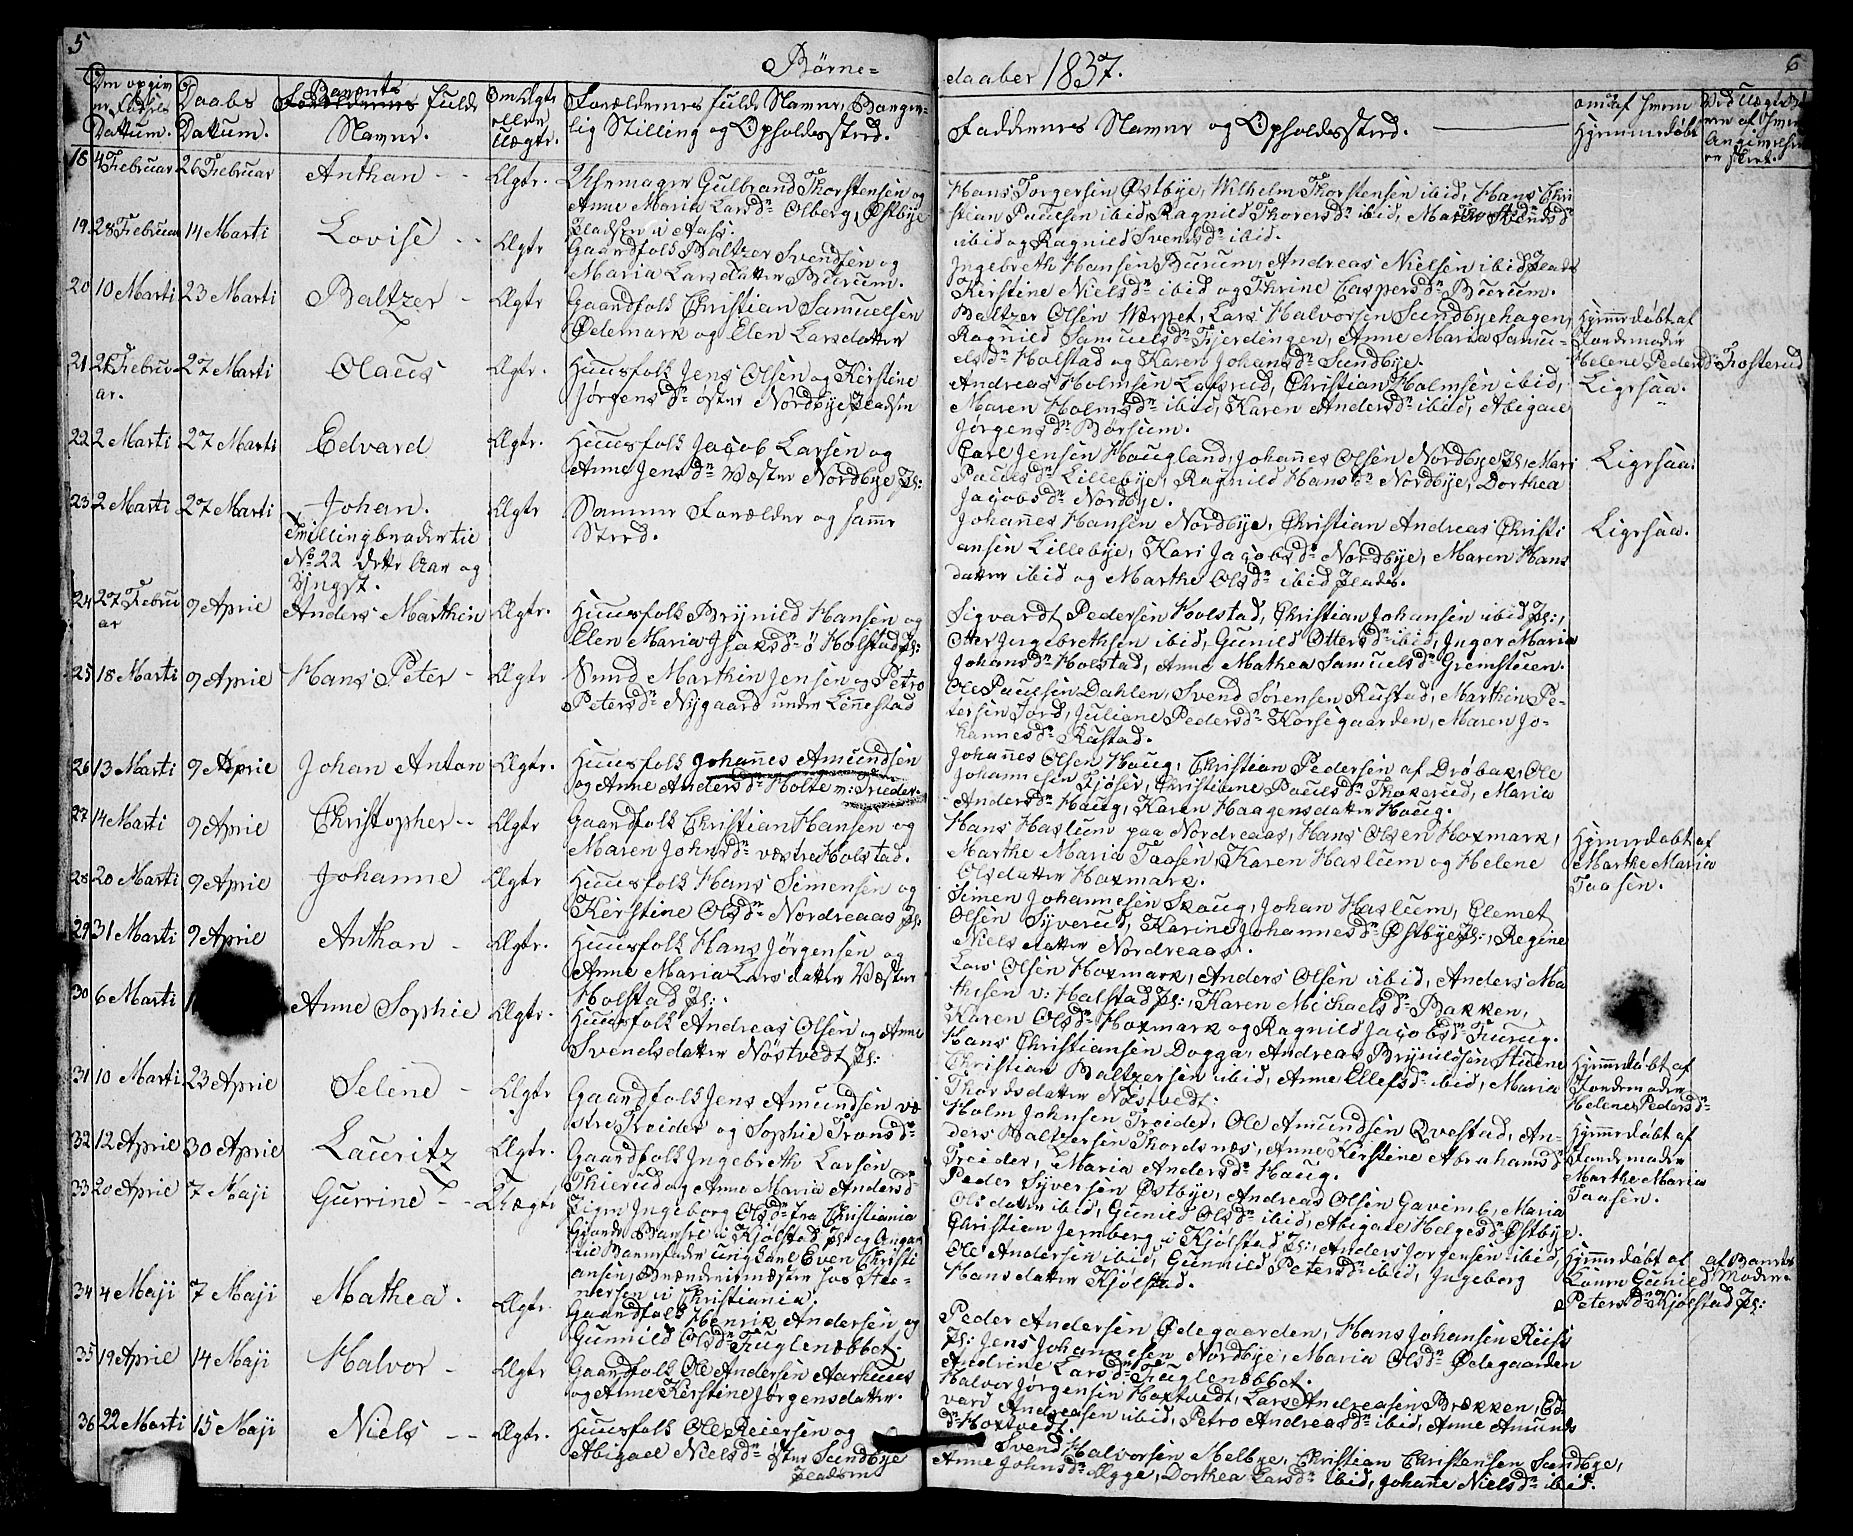 5
Börne=
daaber 1837.
6
Daabs
Datum.
Datum.
Barnets
fulde
Navne.
Om Ægte
eller
Uægte.
Forældrenes fulde Navne, Borger-
lig Stilling og Opholdssted.
Faddernes Navne og Opholdssted.
om af hvem
Hjemmedøbt
18 4 Februar 26 Februar Anthon - - Ægte.
Gulbrand Thorstensen og
Anne Maria Larsdr. Olberg, Østbye
Pladsen i Aass.
Hans Torgersen Østbye, Wilhelm Thorstensen ibid, Hans Chri
stian Paulsen ibid, Ragnild Thoresdr. ibid, Maren
ibid og Ragnild Svensdr. ibid.
19. 28 Februar 14 Marti Lovise - - Ægte
Gaardfolk Baltzer Svendsen og
Maria Larsdatter Burum.
Ingebreth Hansen Burum, Andreas Nielsen ibid Plads
Kirstine Nielsdr. ibid og Thrine Caspersdr. Burum.
20 10 Marti 23 Marti Baltzer - Ægte
Gaardfolk Christian Samuelsen
Ødemark og Elen Larsdatter
Baltzer Olsen Værpet, Lars Halvorsen Sundbyehagen,
Ragnild Samuelsdr. Fjerdingen, Anne Maria Samu-
elsdr. Holstad og Karen Johansdr. Sundbye.
Hjemmedøbt af
Jordemoder
Helene Pedersdr. Frosterud
21 Februar. 27 Marti Olaus Ægte.
Huusfolk Jens Olsen og Kirstine
Jörgensdr. öster Nordbye Pladsen
Andreas Holmsen Lafsrud, Christian Holmsen ibid,
Maren Holmsdr. ibid, Karen Andersdr. ibid, Abigael
Jörgensdr. Borsum.
Ligesaa.
22 2 Marti 27 Marti Edvard Ægte.
Huusfolk Jacob Larsen og
Anne Jensdr. Væster Nordbye Pl:
Carl Jensen Haugland, Johannes Olsen Nordbye Pl:, Mari
Paulsdr. Lillebye, Ragnild Hansdr. Nordbye, Dorthea
Jacobsdr. Nordbye.
Ligesaa.
23 2 Marti 27 Marti Johan. Ægte
Tvillingbroder til
No. 22 dette Aar og
Yngst.
Samme Forælder og samme
Sted.
Johannes Hansen Nordbye, Christian Andreas Christi
ansen Lillebye, Kari Jacobsdr. Nordbye, Maren Hans
datter ibid og Marthe Olsdr. ibid Plads.
Ligesaa.
24 27 Februar 9 April Anders Marthin Ægte.
Huusfolk Brynild Hansen og
Elen Maria Isaksdr. ö Holstad Pl:
Sigvardt Pedersen Holstad, Christian Johansen ibid Pl:,
Otter Ingebrethsen ibid, Gunild Ottersdr. ibid, Inger Maria
Johansdr. Holstad, Anne Mathea Samuelsdr. Gremstuen.
25 18 Marti 9 April Hans Peter - Ægte
Smed Marthin Jensen og Petro
Petersdr. Nygaard under Linnestad
Ole Paulsen Dahlen, Svend Sörensen Rustad, Marthin Pe-
tersen Jord, Juliane Pedersdr. Korsegaarden, Maren Jo-
hannesdr. Rustad.
26 13 Marti 9 April Johan Anton Ægte.
Huusfolk Johannes Amundsen
og Anne Andersdr. Holte n: Treider.
Johannes Olsen Haug, Christian Pedersen af Dröbak, Ole
Johannesen Kjöser, Christiane Paulsdr. Thokerud, Maria
Andersdr. Haug, Karen Haagensdatter Haug.
27 14 Marti 9 April Christopher - - Ægte
Gaardfolk Christian Hansen og
Maren Johnsdr. væstre Holstad.
Hans Haslum paa Nordreaas, Hans Olsen Hoxmark,
Marthe Maria Taasen, Karen Haslum og Helene
Olsdatter Hoxmark.
Hjemmedøbt af
Marthe Maria
Taasen.
28 20 Marti 9 April Johanne Ægte
Huusfolk Hans Simensen og
Kirstine Olsdr. Nordreaas Pl:
Simen Johannesen Skoug, Johan Haslum, Clemet
Olsen Syverud, Karine Johannesdr. Østbye Pl:, Regine
Nielsdatter Nordreaas.
29 31 Marti 9 April Anthon - Ægte.
Huusfolk Hans Jörgensen og
Anne Maria Larsdatter Væster
Holstad Pl:
Lars Olsen Hoxmark, Anders Olsen ibid, Anders Ma
thisen v: Holstad Pl:, Karen Michaelsdr. Bakken,
Karen Olsdr. Hoxmark og Ragnild Jacobsdr. Furug.
30 6 Marti Anne Sophie Ægte.
Huusfolk Andreas Olsen og Anne
Svendsdatter Nöstvedt Pl:
Hans Christiansen Dogga, Andreas Brynildsen Stuene
Christian Baltzersen ibid, Anne Ellefsdr. ibid, Maria
Thordsdatter Nöstvedt.
31 10 Marti 23 April Selene - Ægte
Gaardfolk Jens Amundsen væ
stre Treider og Sophie Tronsdr.
Holm Johnsen Treider, Ole Amundsen Qvestad, An-
ders Baltzersen Thordsnæs, Anne Kirstine Abrahamsdr.
Treider, Maria Andersdr. Haug.
Hjemmedøbt af
Jordemoder
Helene Pedersdr.
32 12 April 30 April Lauritz Ægte.
Gaardfolk Ingebreth Larsen
Thierud og Anne Maria Andersdr.
Peder Syversen Østbye, Andreas Olsen Gavimb, Maria
Olsdatter ibid, Gunild Olsdr. ibid, Abigael Helgesdr. Østbye.
Hjemmedøbt af
Jordemoder
Marthe Maria
Taasen.
33 20 April 7 Maji Gurrine - - Uægte
Pige Ingeborg Olsdr. fra Christiania
i Kjölstad Pl: og Angi
Barnefader ungkarl Even Christi
ansen, Brændevinsmester hos
i Christiania.
Christian Jernberg i Kjölstad Pl:, Anders Jorgensen ibid,
Ole Andersen ibid, Gunnild Petersdr. ibid, Ingeborg
Hansdatter Kjölstad.
Hjemmedøbt af
Konen Gunild
Petersdr. Kjölstad Pl:
af Barnets
Moder
34 4 Maji 7 Maji Mathea. Ægte.
Gaardfolk Henrik Andersen og
Gunnild Olsdr. Fuglenæbbet.
Peder Andersen Ødegaarden, Hans Johansen Reiss
Pl: Jens Johannesen Nordbye, Maria Olsdr. Ødegaarden
Andrine Larsdr. Fuglenæbbet.
35 19 April 14 Maji Halvor - Ægte
Gaardfolk Ole Andersen Aarhuus
og Anne Kirstine Jörgensdatter.
Halvor Jörgensen Hoxtvedt, Lars Andreasen Brekken, Ed
vard Andreasen ibid, Petro Andreasdr. ibid, Anne Amunds
dr. Hoxtvedt.
36 22 Marti 15 Maji Niels - - Ægte.
Huusfolk Ole Reiersen og
Abigael Nielsdr. öster Sundbye
Pladsen
Svend Halvorsen Melbye, Christian Christensen Sundbye,
Anne Johnsdr. Ægge, Dorthea Larsdr. ibid, Johanne Nielsdr. ibid.